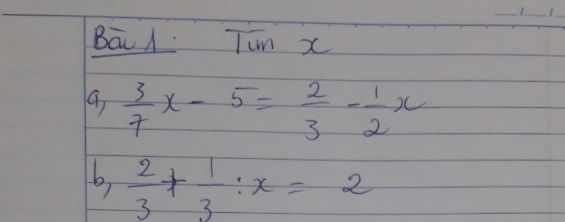 Bài 1. Tìm x
a, 3/7 x - 5 = 2/3 - 1/2 x
b, 2/3 + 1/3 : x = 2